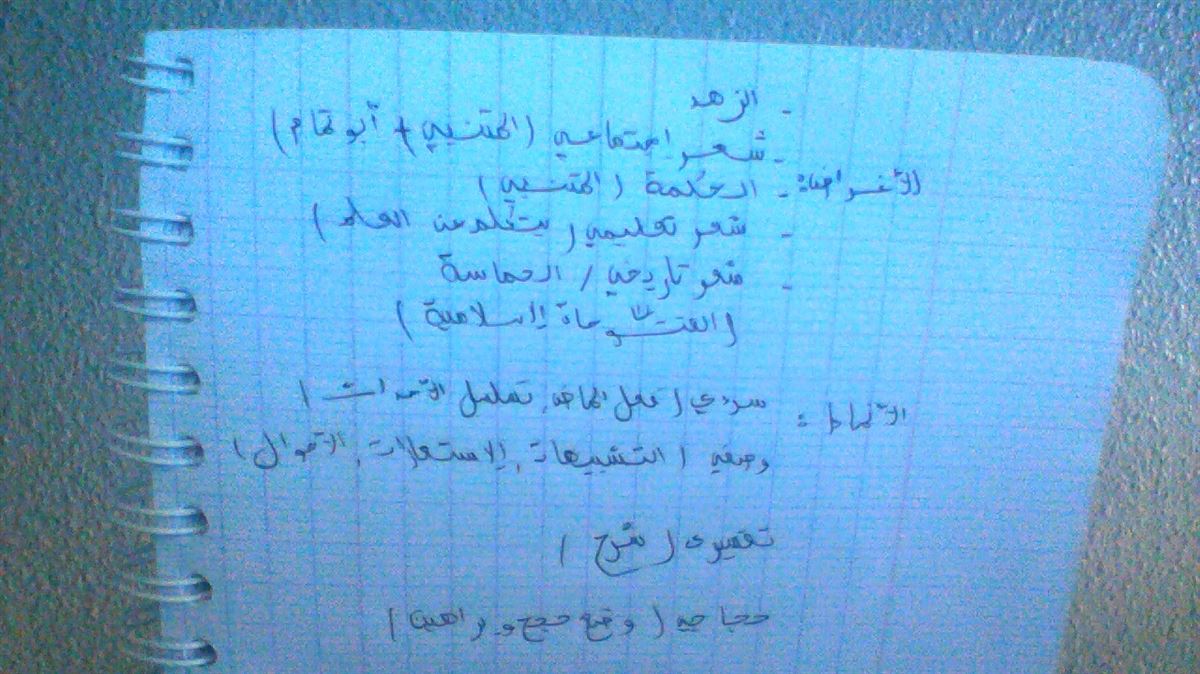 - الزهد
- شعر اجتماعي (المتنبي + أبو تمام)
الأغراض: - الحكمة (المتنبي)
- شعر تعليمي (يتكلم عن العلم)
- شعر تاريخي / الحماسة
(الفتوحات الإسلامية)
الأنماط: سردي (فعل الماضي، تسلسل الأحداث)
وصفي (التشبيهات، الاستعارات، الأحوال)
تفسيري (شرح)
حجاجي (وضع حجج و براهين)